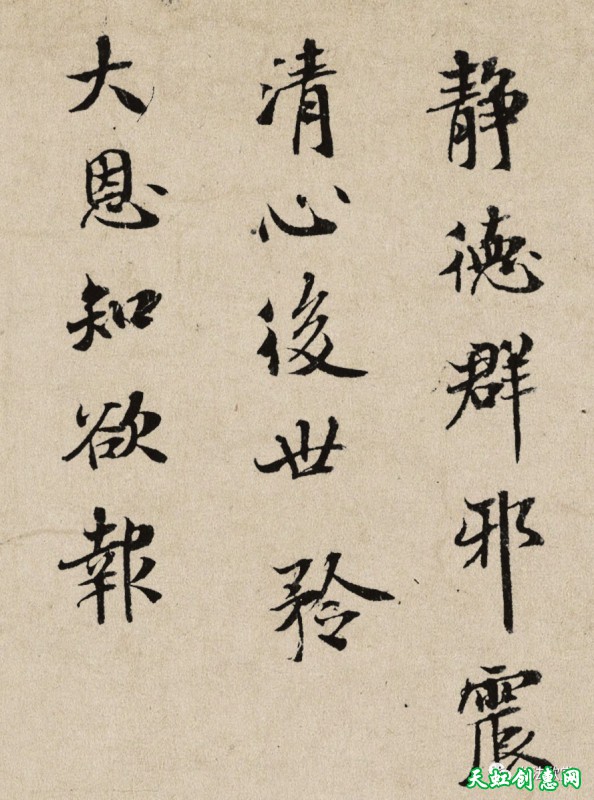 静德群邪震
清心後世矜
大恩知欲報
天虹创惠网